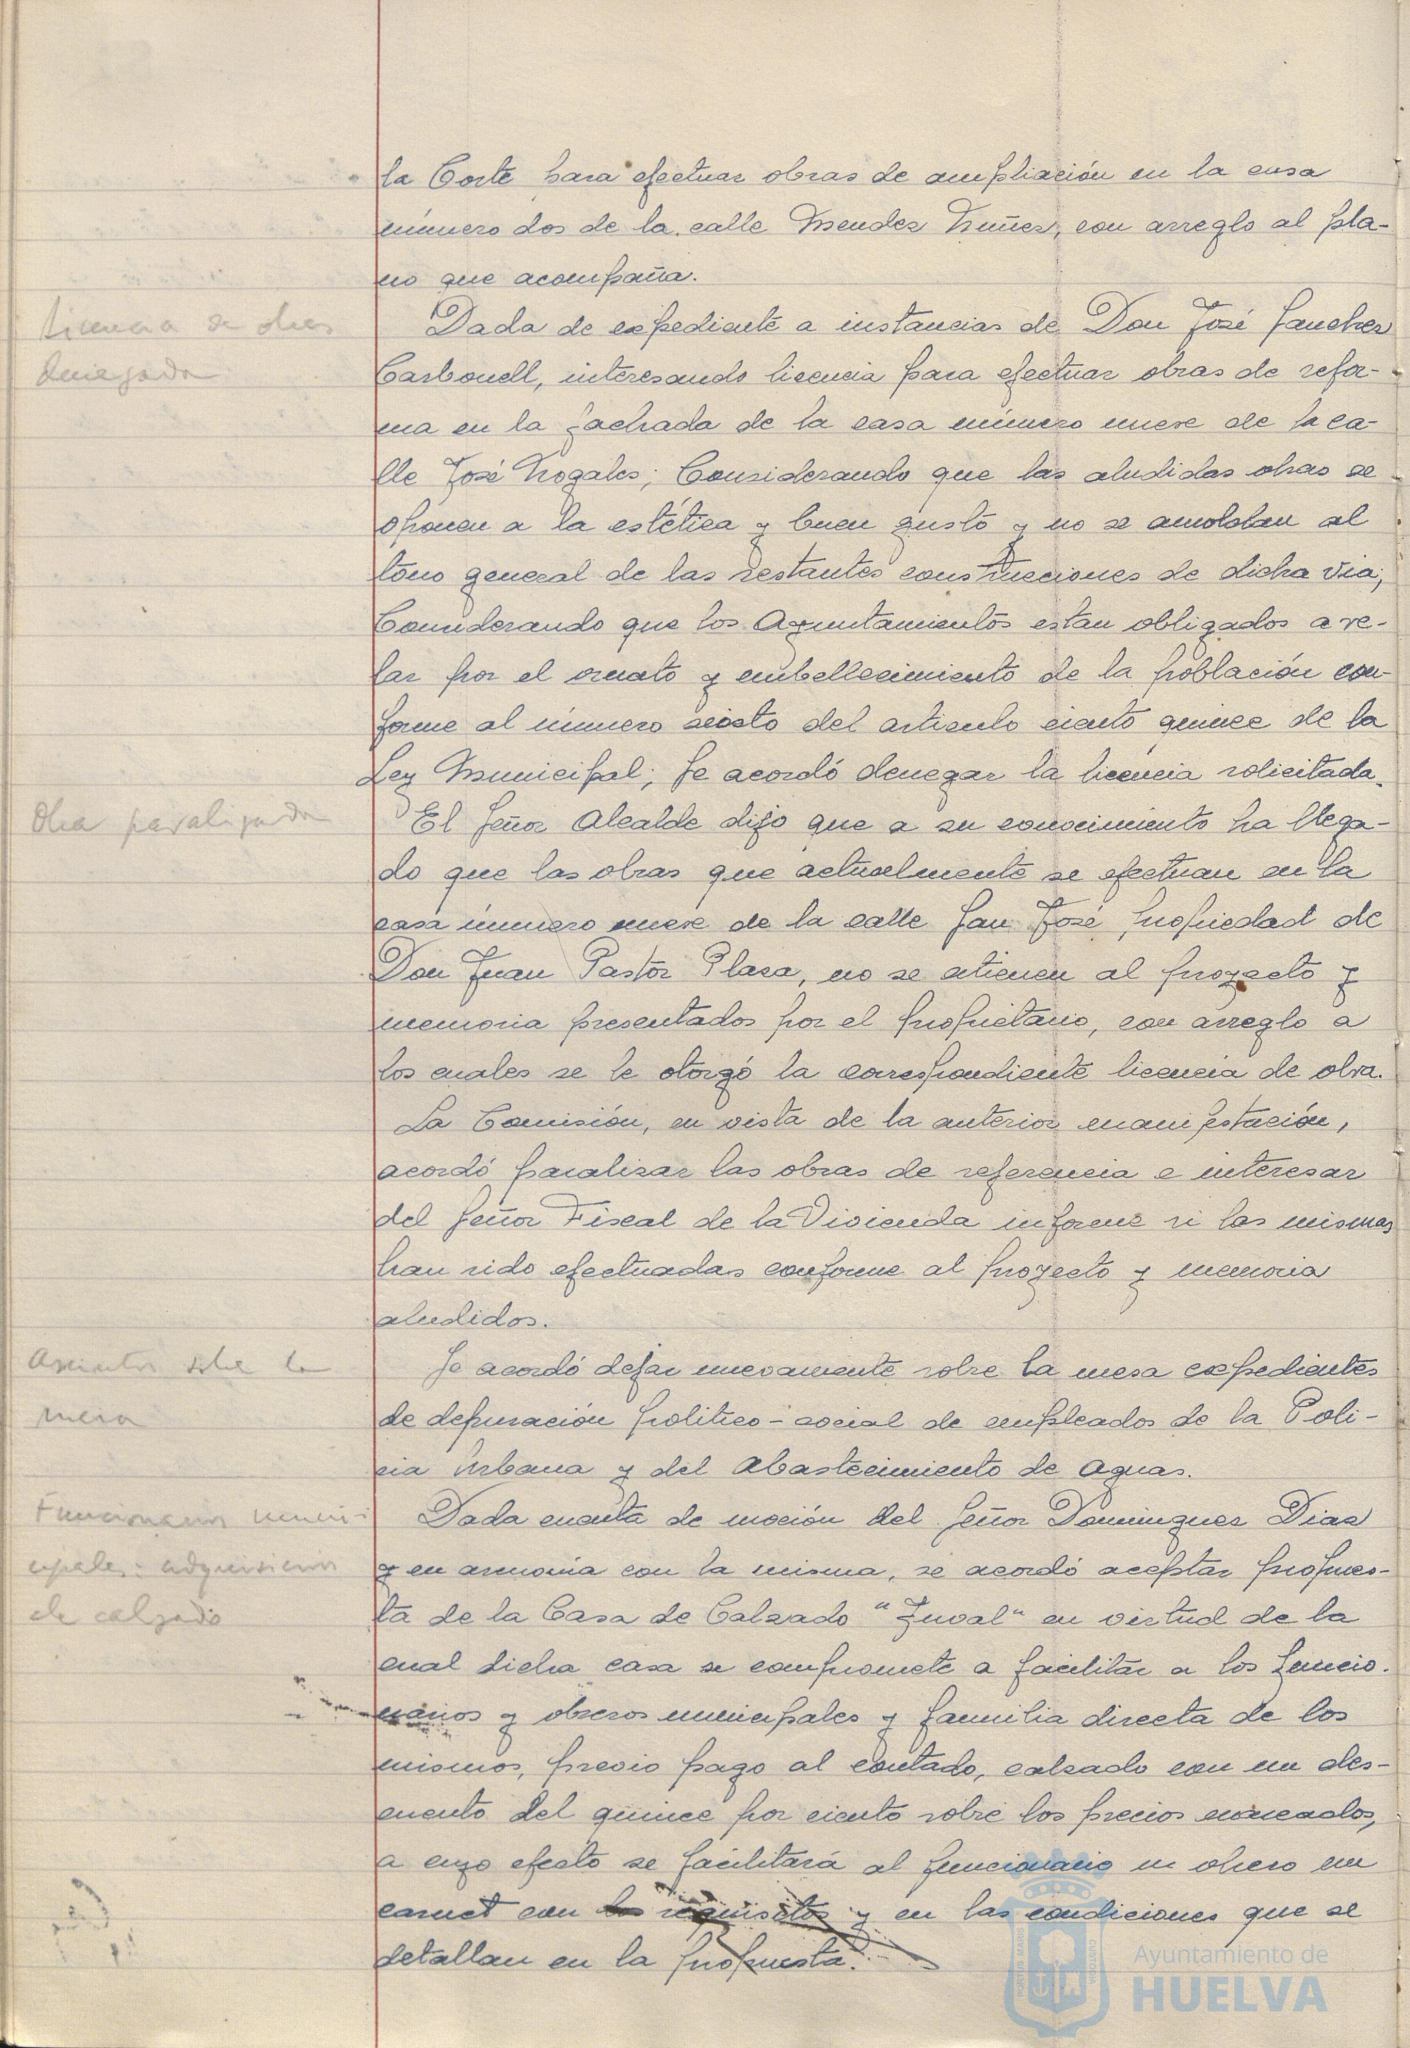 la Corte para efectuar obras de ampliación en la casa
número dos de la calle Mendez Nuñez, con arreglo al pla-
no que acompaña.
Licencia de obras
denegada
Dada de expediente a instancias de Don José Sanchez
Carbonell, interesando licencia para efectuar obras de refor-
ma en la fachada de la casa número nueve de la ca-
lle José Nogales; Considerando que las aludidas obras se
oponen a la estética y buen gusto y no se amoldan al
tono general de las restantes construcciones de dicha via;
Considerando que los Ayuntamientos estan obligados a ve-
lar por el ornato y embellecimiento de la población con-
forme al número sexto del articulo ciento quince de la
Ley Municipal; Se acordó denegar la licencia solicitada.
Obra paralizada
El Señor Alcalde dijo que a su conocimiento ha llega-
do que las obras que actualmente se efectuan en la
casa número nueve de la calle San José propiedad de
Don Juan Pastor Plaza, no se atienen al proyecto y
memoria presentados por el propietario, con arreglo a
los cuales se le otorgó la correspondiente licencia de obra.
La Comisión, en vista de la anterior manifestación,
acordó paralizar las obras de referencia e interesar
del Señor Fiscal de la Vivienda informe si las mismas
han sido efectuadas conforme al proyecto y memoria
aludidos.
Asuntos sobre la
mesa
Se acordó dejar nuevamente sobre la mesa expedientes
de depuración politico-social de empleados de la Poli-
cia Urbana y del Abastecimiento de Aguas.
Funcionarios munici-
cipales: adquisicion
de calzado
Dada cuenta de moción del Señor Dominguez Diaz
y en armonía con la misma, se acordó aceptar propues-
ta de la Casa de Calzado "Juval" en virtud de la
cual dicha casa se compromete a facilitar a los funcio-
narios y obreros municipales y familia directa de los
mismos, previo pago al contado, calzado con un des-
cuento del quince por ciento sobre los precios marcados,
a cuyo efecto se facilitará al funcionario u obrero un
carnet con los requisitos y en las condiciones que se
detallan en la propuesta.
Ayuntamiento de
HUELVA